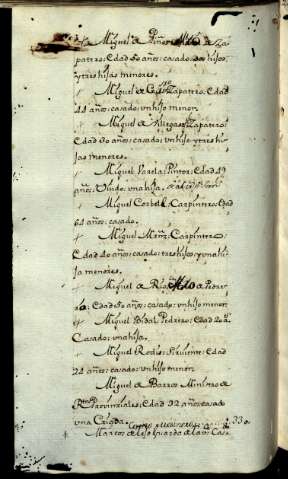 Miguel de Piñor M.ro de Za-
patero: Edad 60 años: casado: dos hijos,
y tres hijas menores.
+ Miguel de Zapatero: Edad
44 años: casado: un hijo menor.
+ Miguel de Zapatero:
Edad 50 años: casado: un hijo y tres hi-
jas menores.
+ Miguel Varela: Pintor: Edad 49
años: Viudo: una hija.
+ Miguel Corbelle: Carpintero: Edad
64 años: casado.
+ Miguel Mrñz: Carpintero:
Edad 40 años: casado: tres hijos y una hi-
ja menores.
+ Miguel de M.ro de
Edad 50 años: casado: un hijo menor.
+ Miguel Vidal: Pedrero: Edad 20 a.s
Casado: una hija.
+ Miguel Rodrs: Sirviente: Edad
24 años: casado: un hijo menor.
Miguel de Barros Ministro de
R.tas Provinciales: Edad 32 años: casado
una Criada.
Marcos de guarda de las Cas-